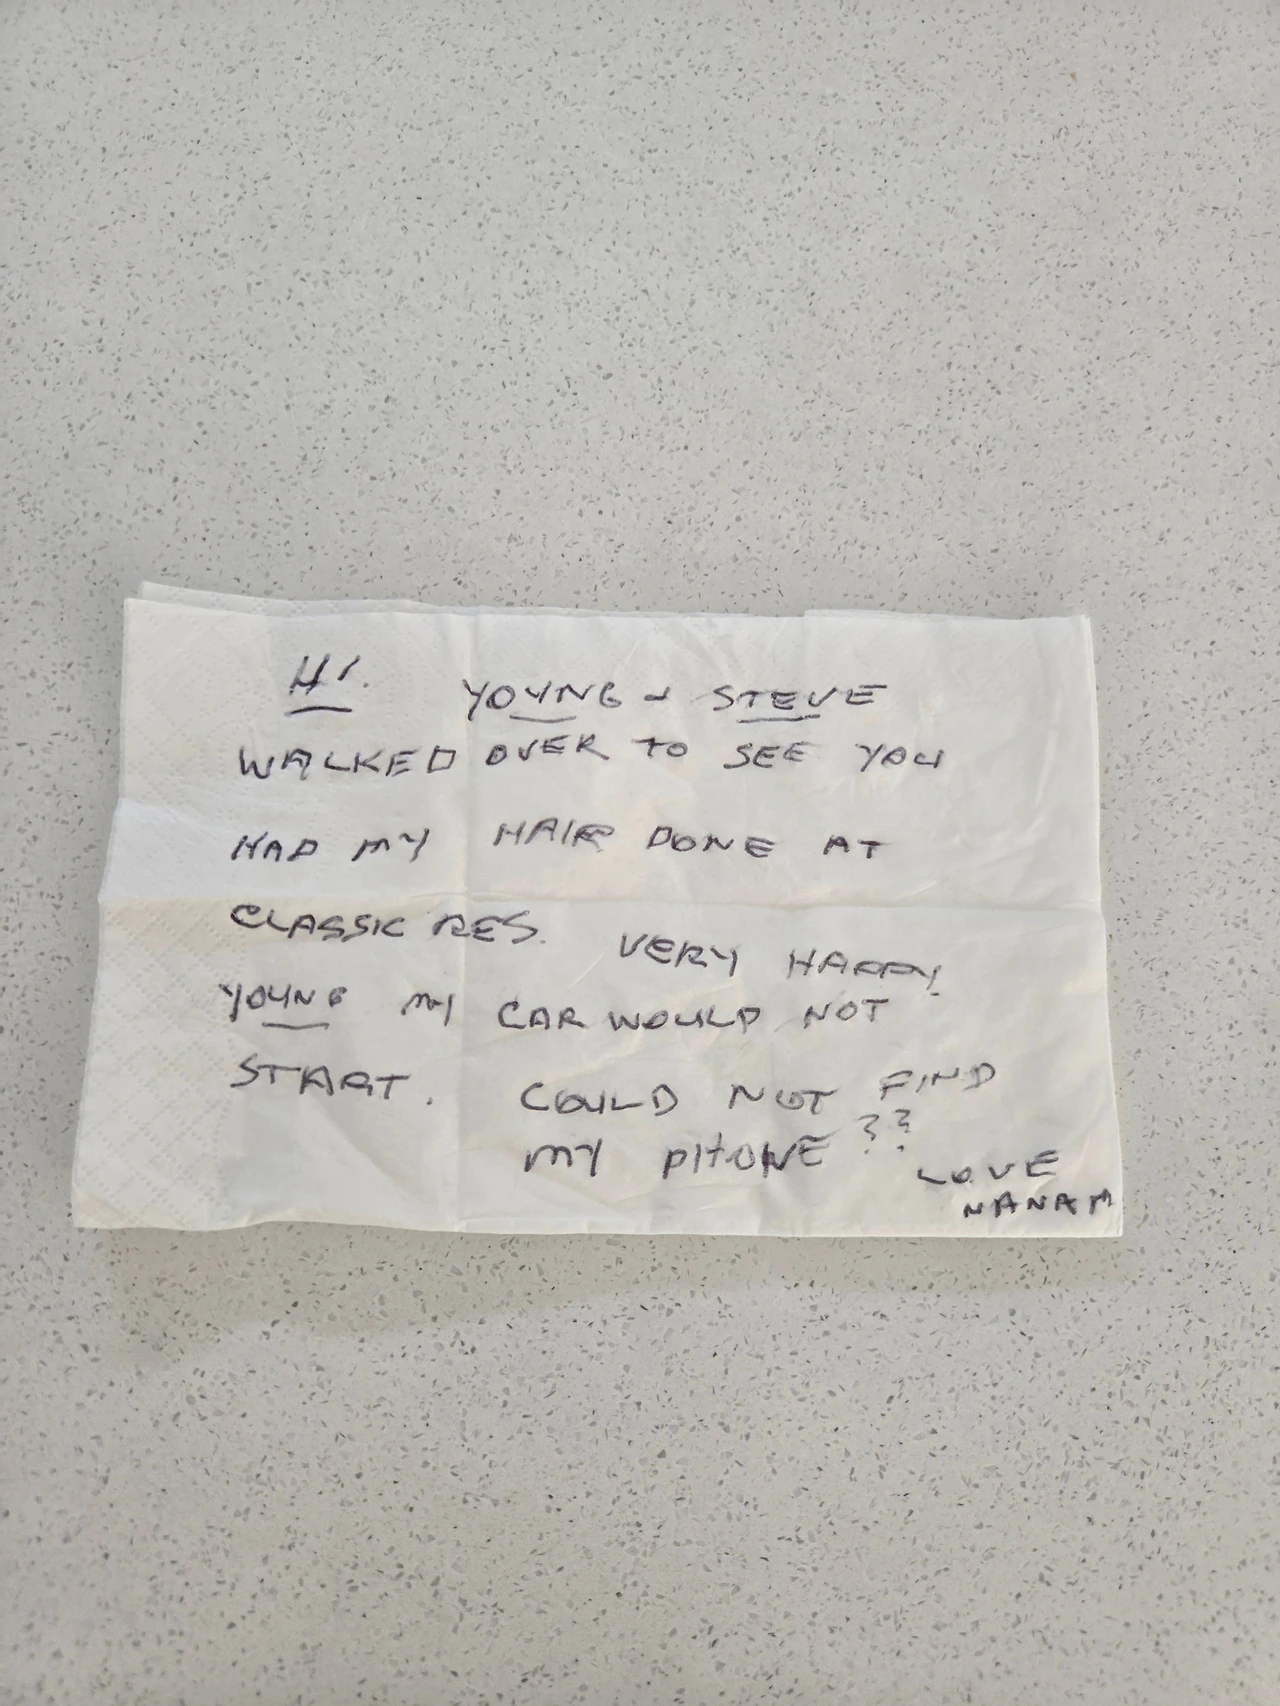 HI. YOUNG + STEVE
WALKED OVER TO SEE YOU
HAD MY HAIR DONE AT
CLASSIC RES. VERY HAPPY.
YOUNG MY CAR WOULD NOT
START. COULD NOT FIND
MY PHONE ??
LOVE
NANAM